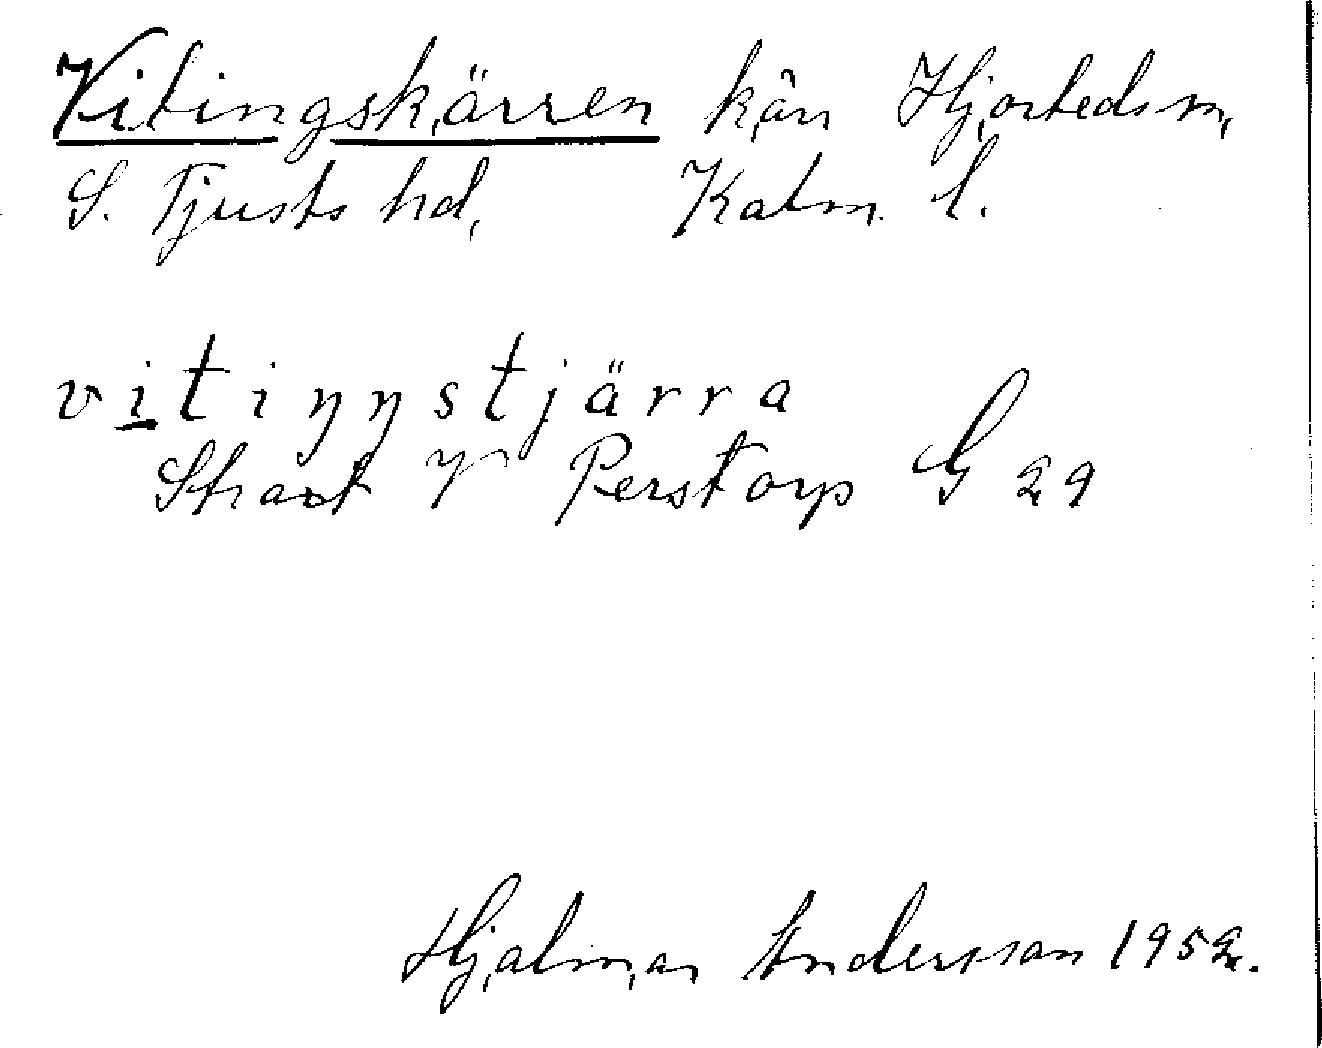 Vitingskärren kärr Hjorteds sn,
S. Tjusts hd, Kalm. l.
vitiŋŋstjärra
Strax V Perstorp G 29
Hjalmar Andersson 1952.